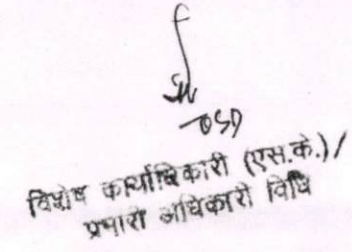 OSD
विशेष कार्याधिकारी (एस.के.)/
प्रभारी अधिकारी विधि